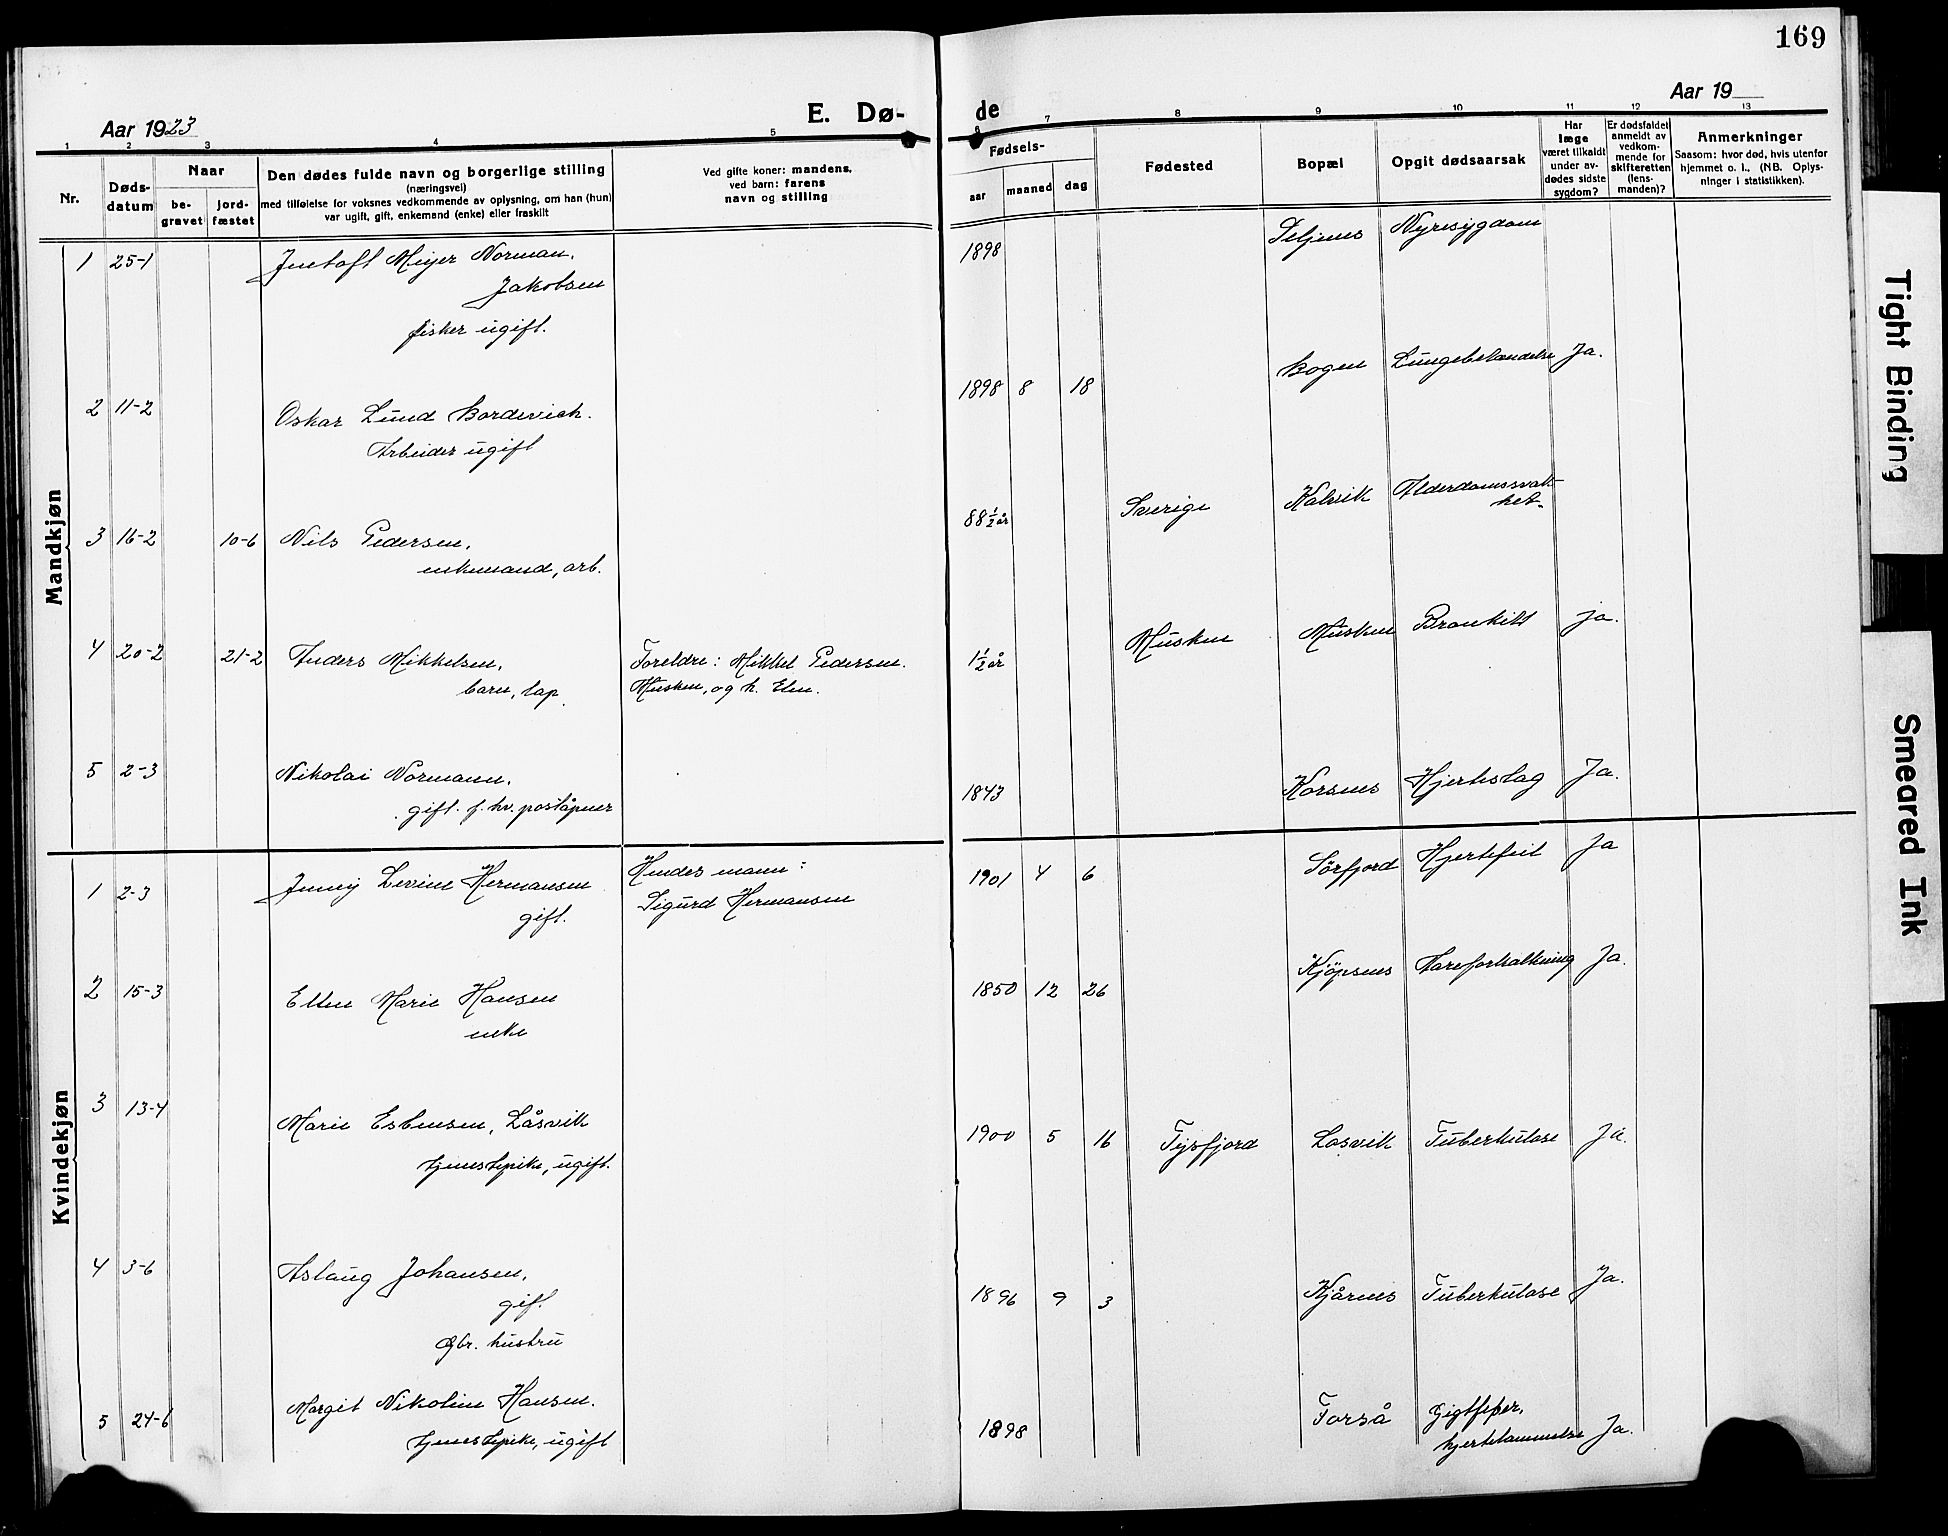 169
Aar 1923
E. Dø-
de
Aar 19
1 2 3 4 5
6 7 8 9 10 11 12 13
Nr.
Døds-
datum
Naar
be-
gravet
jord-
fæstet
Den dødes fulde navn og borgerlige stilling
(næringsvei)
med tilføielse for voksnes vedkommende av oplysning, om han (hun)
var ugift, gift, enkemand (enke) eller fraskilt
Ved gifte koner: mandens,
ved barn: farens
navn og stilling
Fødsels-
aar maaned dag
Fødested
Bopæl
Opgit dødsaarsak
Har
læge
været tilkaldt
under av-
dødes sidste
sygdom?
Er dødsfaldet
anmeldt av
vedkom-
mende for
skifteretten
(lens-
manden)?
Anmerkninger
Saasom: hvor død, hvis utenfor
hjemmet o. l., (NB. Oplys-
ninger i statistikken).
Mandkjøn
1 25-1 Meyer Norman, 1898 Seljenes Nyresygdom
Jakobsen
fisker ugift.
2 11-2 Oskar Lund Bordevich. 1898 8 18 Bogen Lungebetændelse Ja.
Arbeider ugift
3 16-2 10-6 Nils Pedersen, 88 1/2 år Sverige Kalvik Alderdomssvak-
enkemand, arb. het.
4 20-2 21-2 Anders Mikkelsen, Foreldre: Mikkel Pedersen. 1 1/2 år Musken Musken Bronkitt ja.
barn, lap. Musken, og h. Elen.
5 2-3 Nikolai Normann. 1843 Korsnes Hjerteslag Ja.
gift. f. hv. poståpner
Kvindekjøn
1 2-3 Jenny Levine Hermansen Hendes mann: 1901 4 6 Sørfjord Hjertefeil Ja
gift. Sigurd Hermansen
2 15-3 Ellen Marie Hansen 1850 12 26 Kjöpsnes Aareforkalkning Ja.
enke
3 13-4 Marie Esbensen, Låsvik 1900 5 16 Tysfjord Losvik Tuberkulose Ja.
tjenestepike, ugift.
4 3-6 Aslaug Johansen, 1896 9 3 Kjårnes Tuberkulose Ja.
gif.
Gbr. hustru
5 24-6 Margit Nikoline Hansen. 1898 Forså Gigtfeber,
tjenestepike, ugift hjertelammelse Ja.
Tight Binding
Smeared Ink